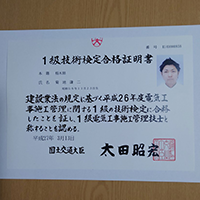 1級技術検定合格証明書
本籍
氏名
建設業法の規定に基づく平成26年度電気工
事施工管理に関する1級の技術検定に合格
したことを証し、1級電気工事施工管理技士と
称することを認める。
平成27年 3月13日
国土交通大臣 太田昭宏